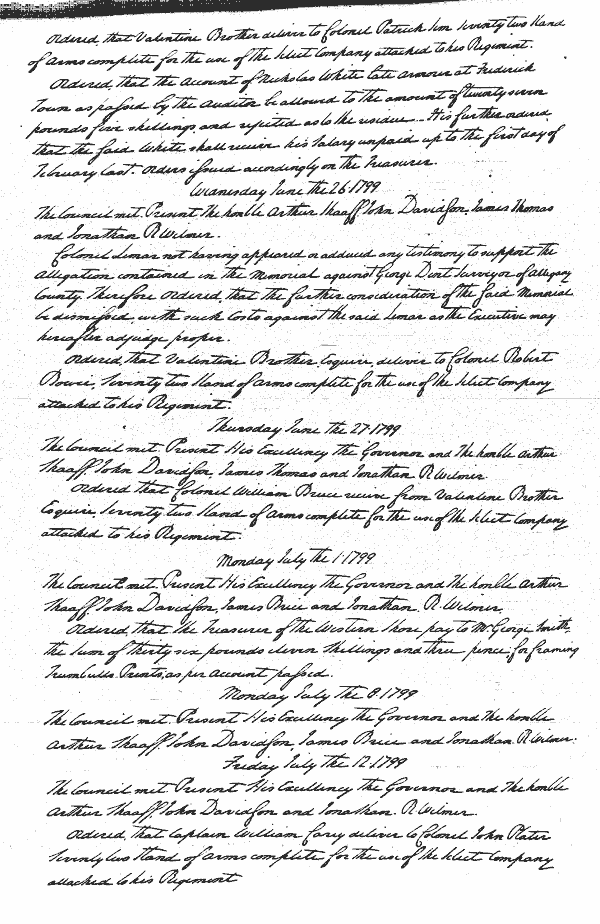 Ordered, that Valentine Brother deliver to Colonel Patrick Sim Seventy two Stand
of Arms complete for the use of the Select Company attached to his Regiment.
Ordered, that the Account of Nicholas White late Armourer at Frederick
Town as passed by the Auditor be allowed to the amount of twenty seven
pounds five shillings and rejected as to the residue. It is further ordered
that the said White shall receive his Salary unpaid up to the first day of
February last. Orders issued accordingly on the Treasurer.
Wednesday June the 26 1799
The Council met. Present The honble Arthur Shaaff, John Davidson, James Thomas
and Jonathan R. Wilmer.
Colonel Lamar not having appeared or adduced any testimony to support the
Allegation contained in the Memorial against George Dent Surveyor of Allegany
County. Therefore Ordered, that the further consideration of the said Memorial
be dismissed, with such Costs against the said Lamar as the Executive may
hereafter adjudge proper.
Ordered, that Valentine Brother Esquire, deliver to Colonel Robert
Bowie, Seventy two Stand of Arms complete for the use of the Select Company
attached to his Regiment.
Thursday June the 27 1799
The Council met. Present His Excellency the Governor and The honble Arthur
Shaaff, John Davidson, James Thomas and Jonathan R. Wilmer
Ordered that Colonel William Bruce receive from Valentine Brother
Esquire, Seventy two Stand of Arms complete for the use of the Select Company
attached to his Regiment.
Monday July the 1 1799
The Council met. Present His Excellency the Governor and the honble Arthur
Shaaff, John Davidson, James Brice and Jonathan R. Wilmer.
Ordered, that the Treasurer of the Western Shore pay to Mr. George Smith
the Sum of thirty six pounds eleven shillings and three pence, for framing
Trumbulls Prints, as per Account passed.
Monday July the 8 1799
The Council met. Present His Excellency the Governor and the honble
Arthur Shaaff, John Davidson, James Brice and Jonathan R. Wilmer.
Friday July the 12 1799
The Council met Present His Excellency the Governor and The honble
Arthur Shaaff, John Davidson and Jonathan R. Wilmer.
Ordered, that Captain William Cary deliver to Colonel John Plater
Seventy two Stand of Arms complete for the use of the Select Company
attached to his Regiment